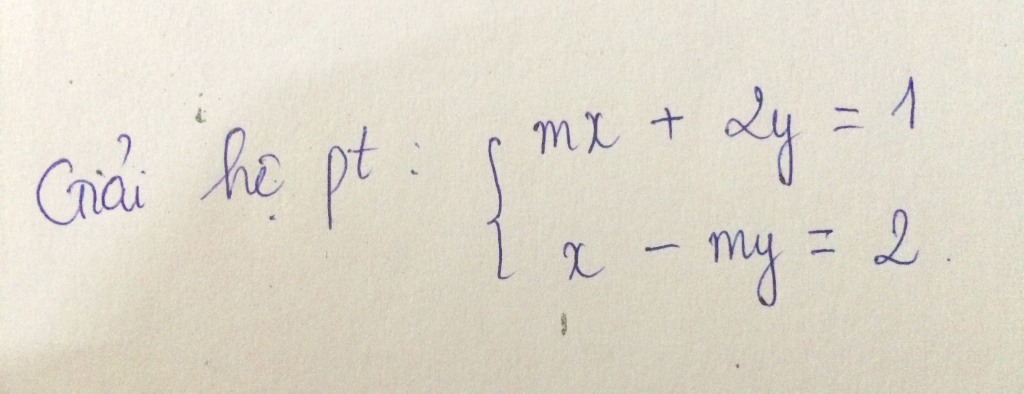 Giải hệ pt: { mx + 2y = 1
x - my = 2.